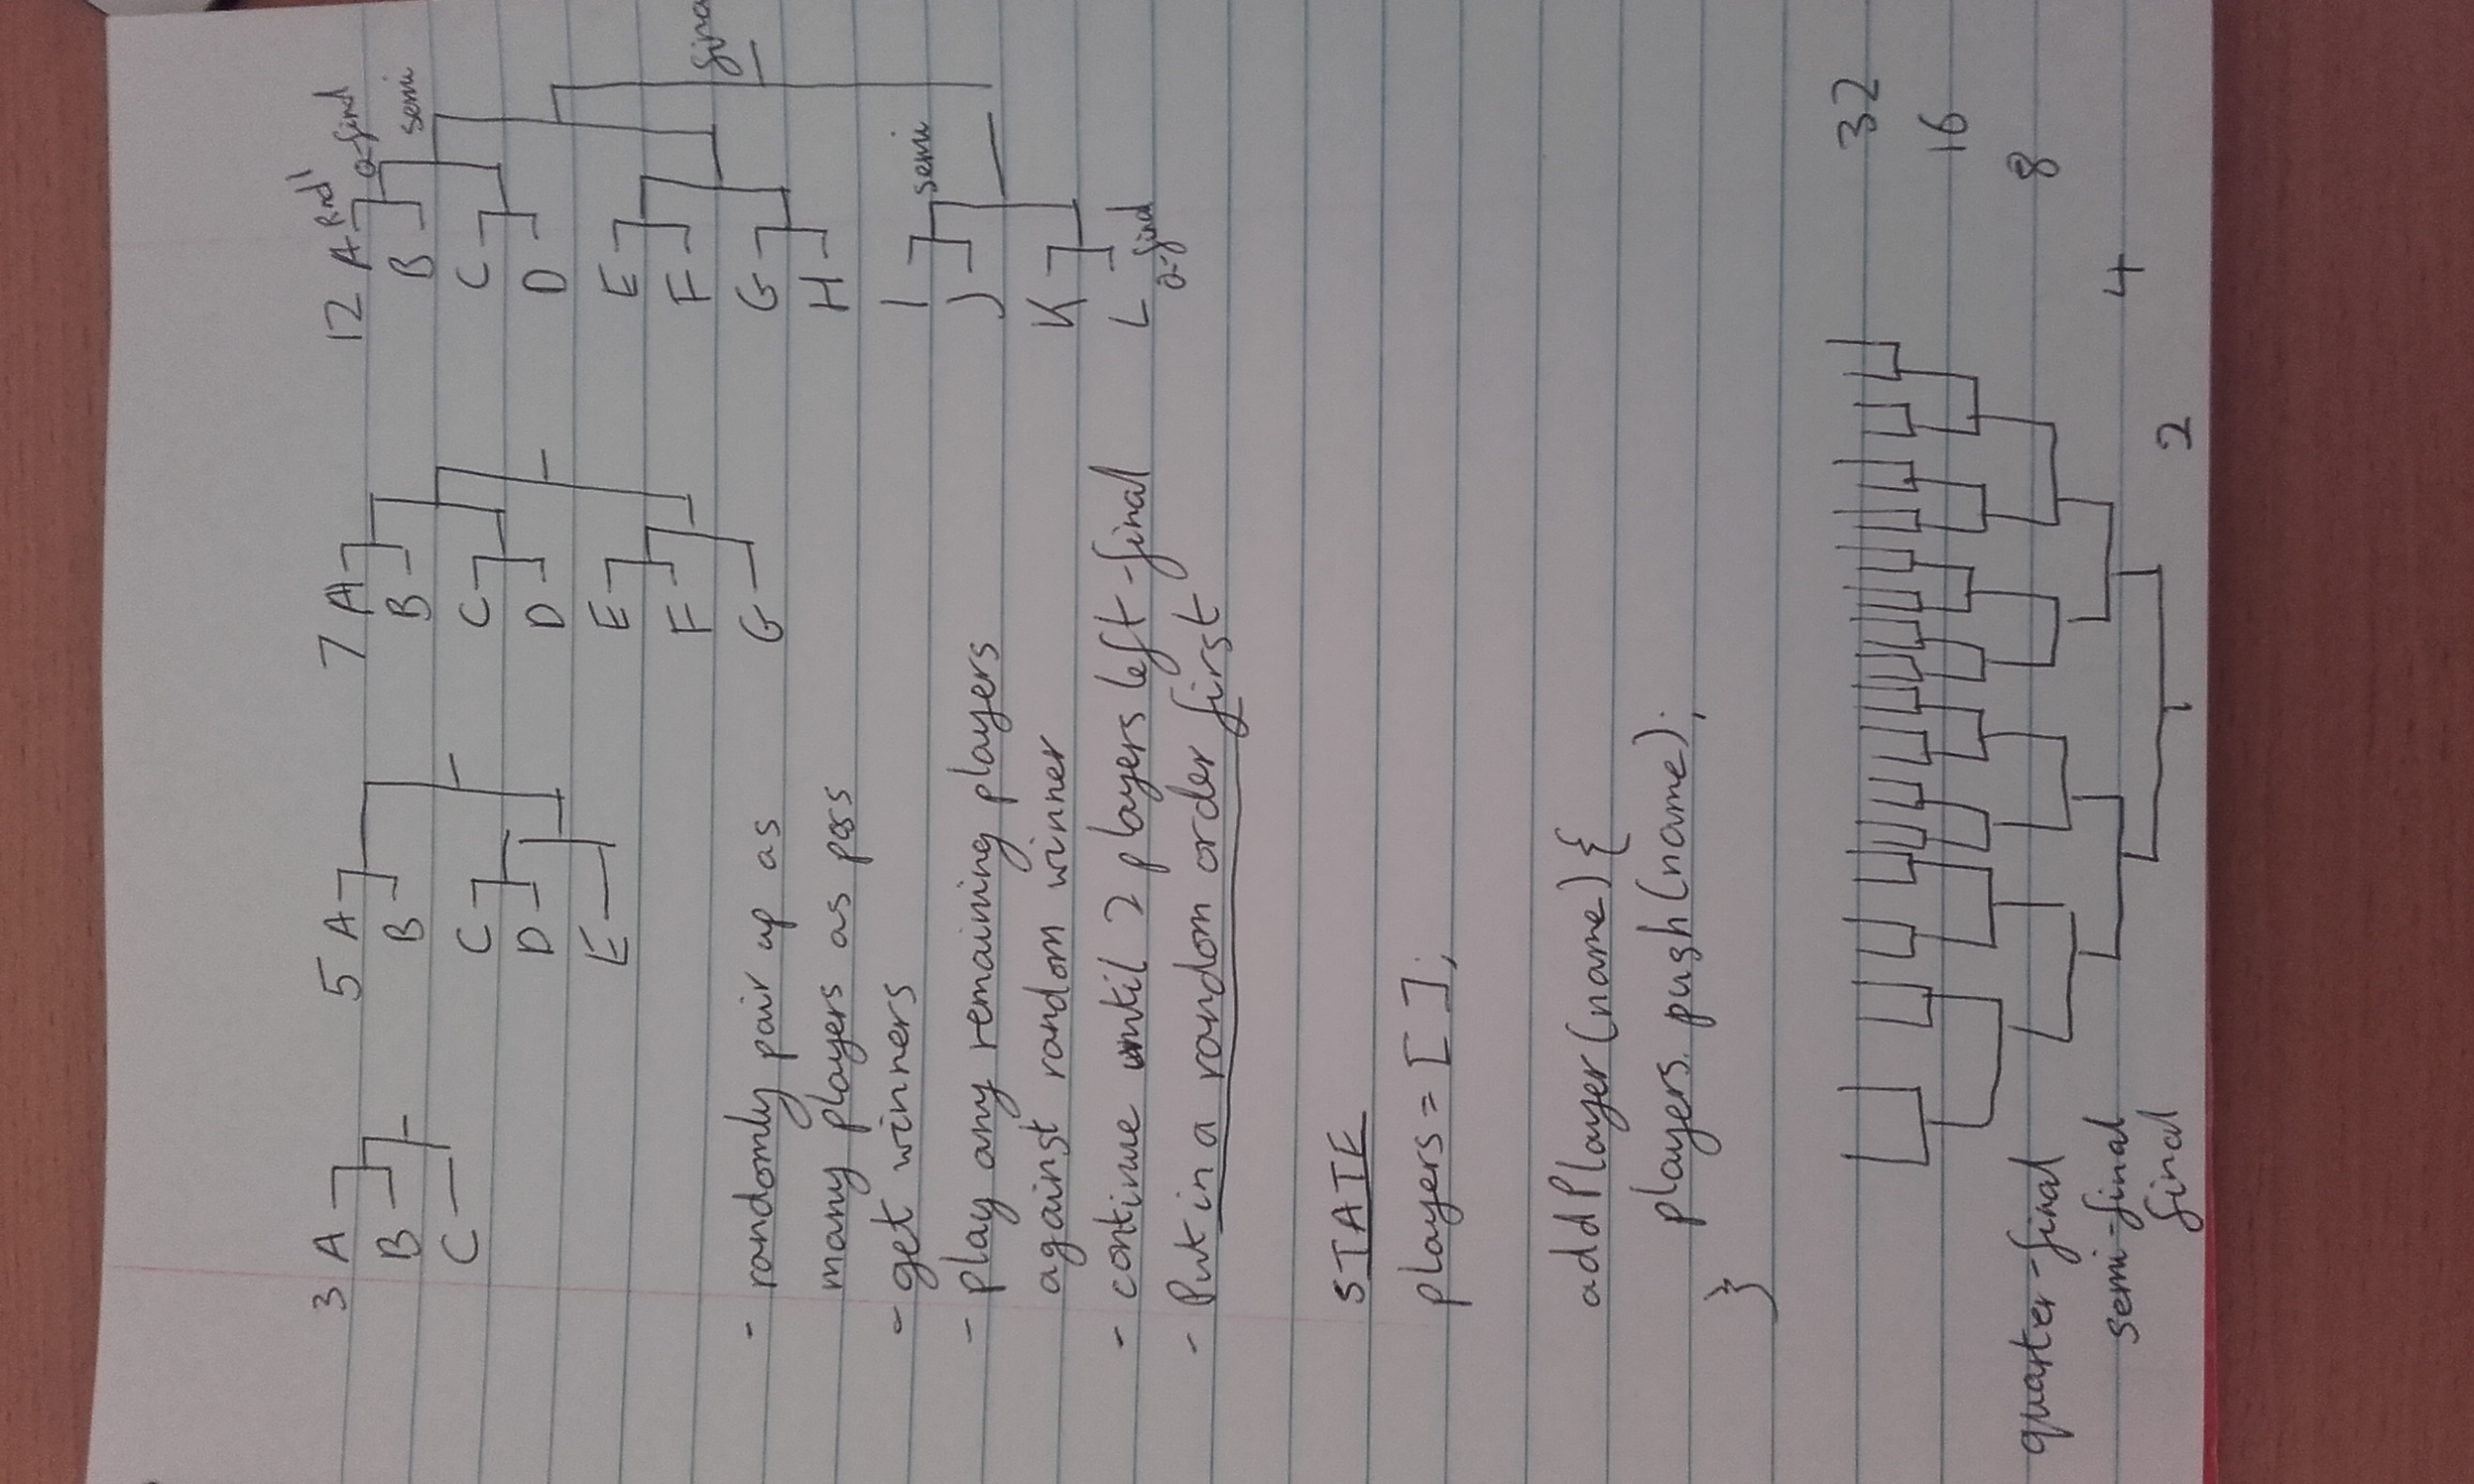 3 A
B
C
5 A
B
C
D
E
7 A
B
C
D
E
F
G
12 A Rnd 1
Q-final
B semi
C
D
E
F
G
H
I
semi
J
K
L
Q-final
- randomly pair up as
many players as poss
- get winners
- play any remaining players
against random winner
- continue until 2 players left - final
- Put in a random order first
STATE
players = [ ];
addPlayer(name){
players.push(name);
}
32
16
quarter-final 8
semi-final 4
final 2